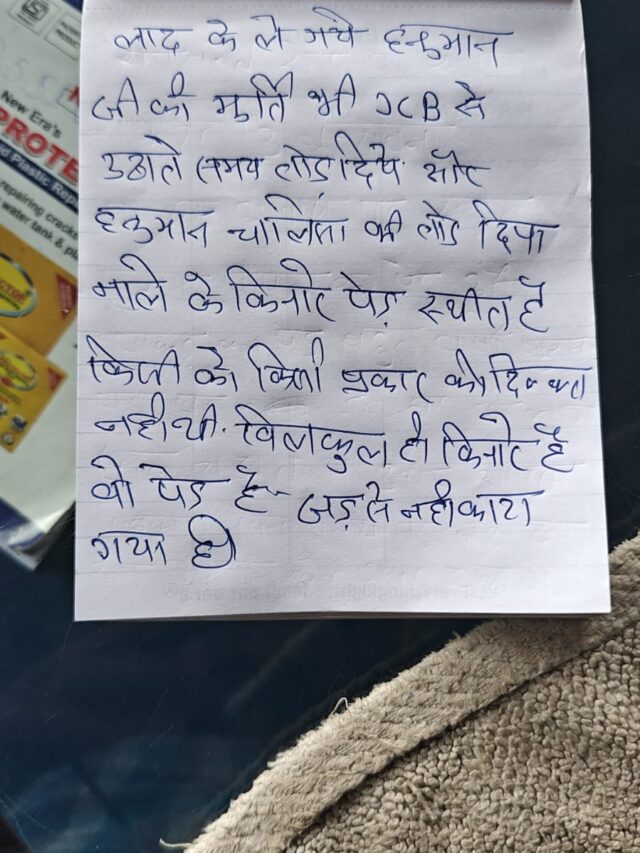 New Era's
PROTE
d Plastic Repa
repairing cracks
water tank & p
लाद के ले गये हनुमान
जी की मुर्ति भी JCB से
उठाते समय तोड़ दिये और
हनुमान चालिसा भी तोड़ दिया
नाले के किनारे पेड़ स्थीत है
किसी को किसी प्रकार की दिक्कत
नही थी. बिलकुल ही किनारे है
वो पेड़ है जड़ से नही काटा
गया है